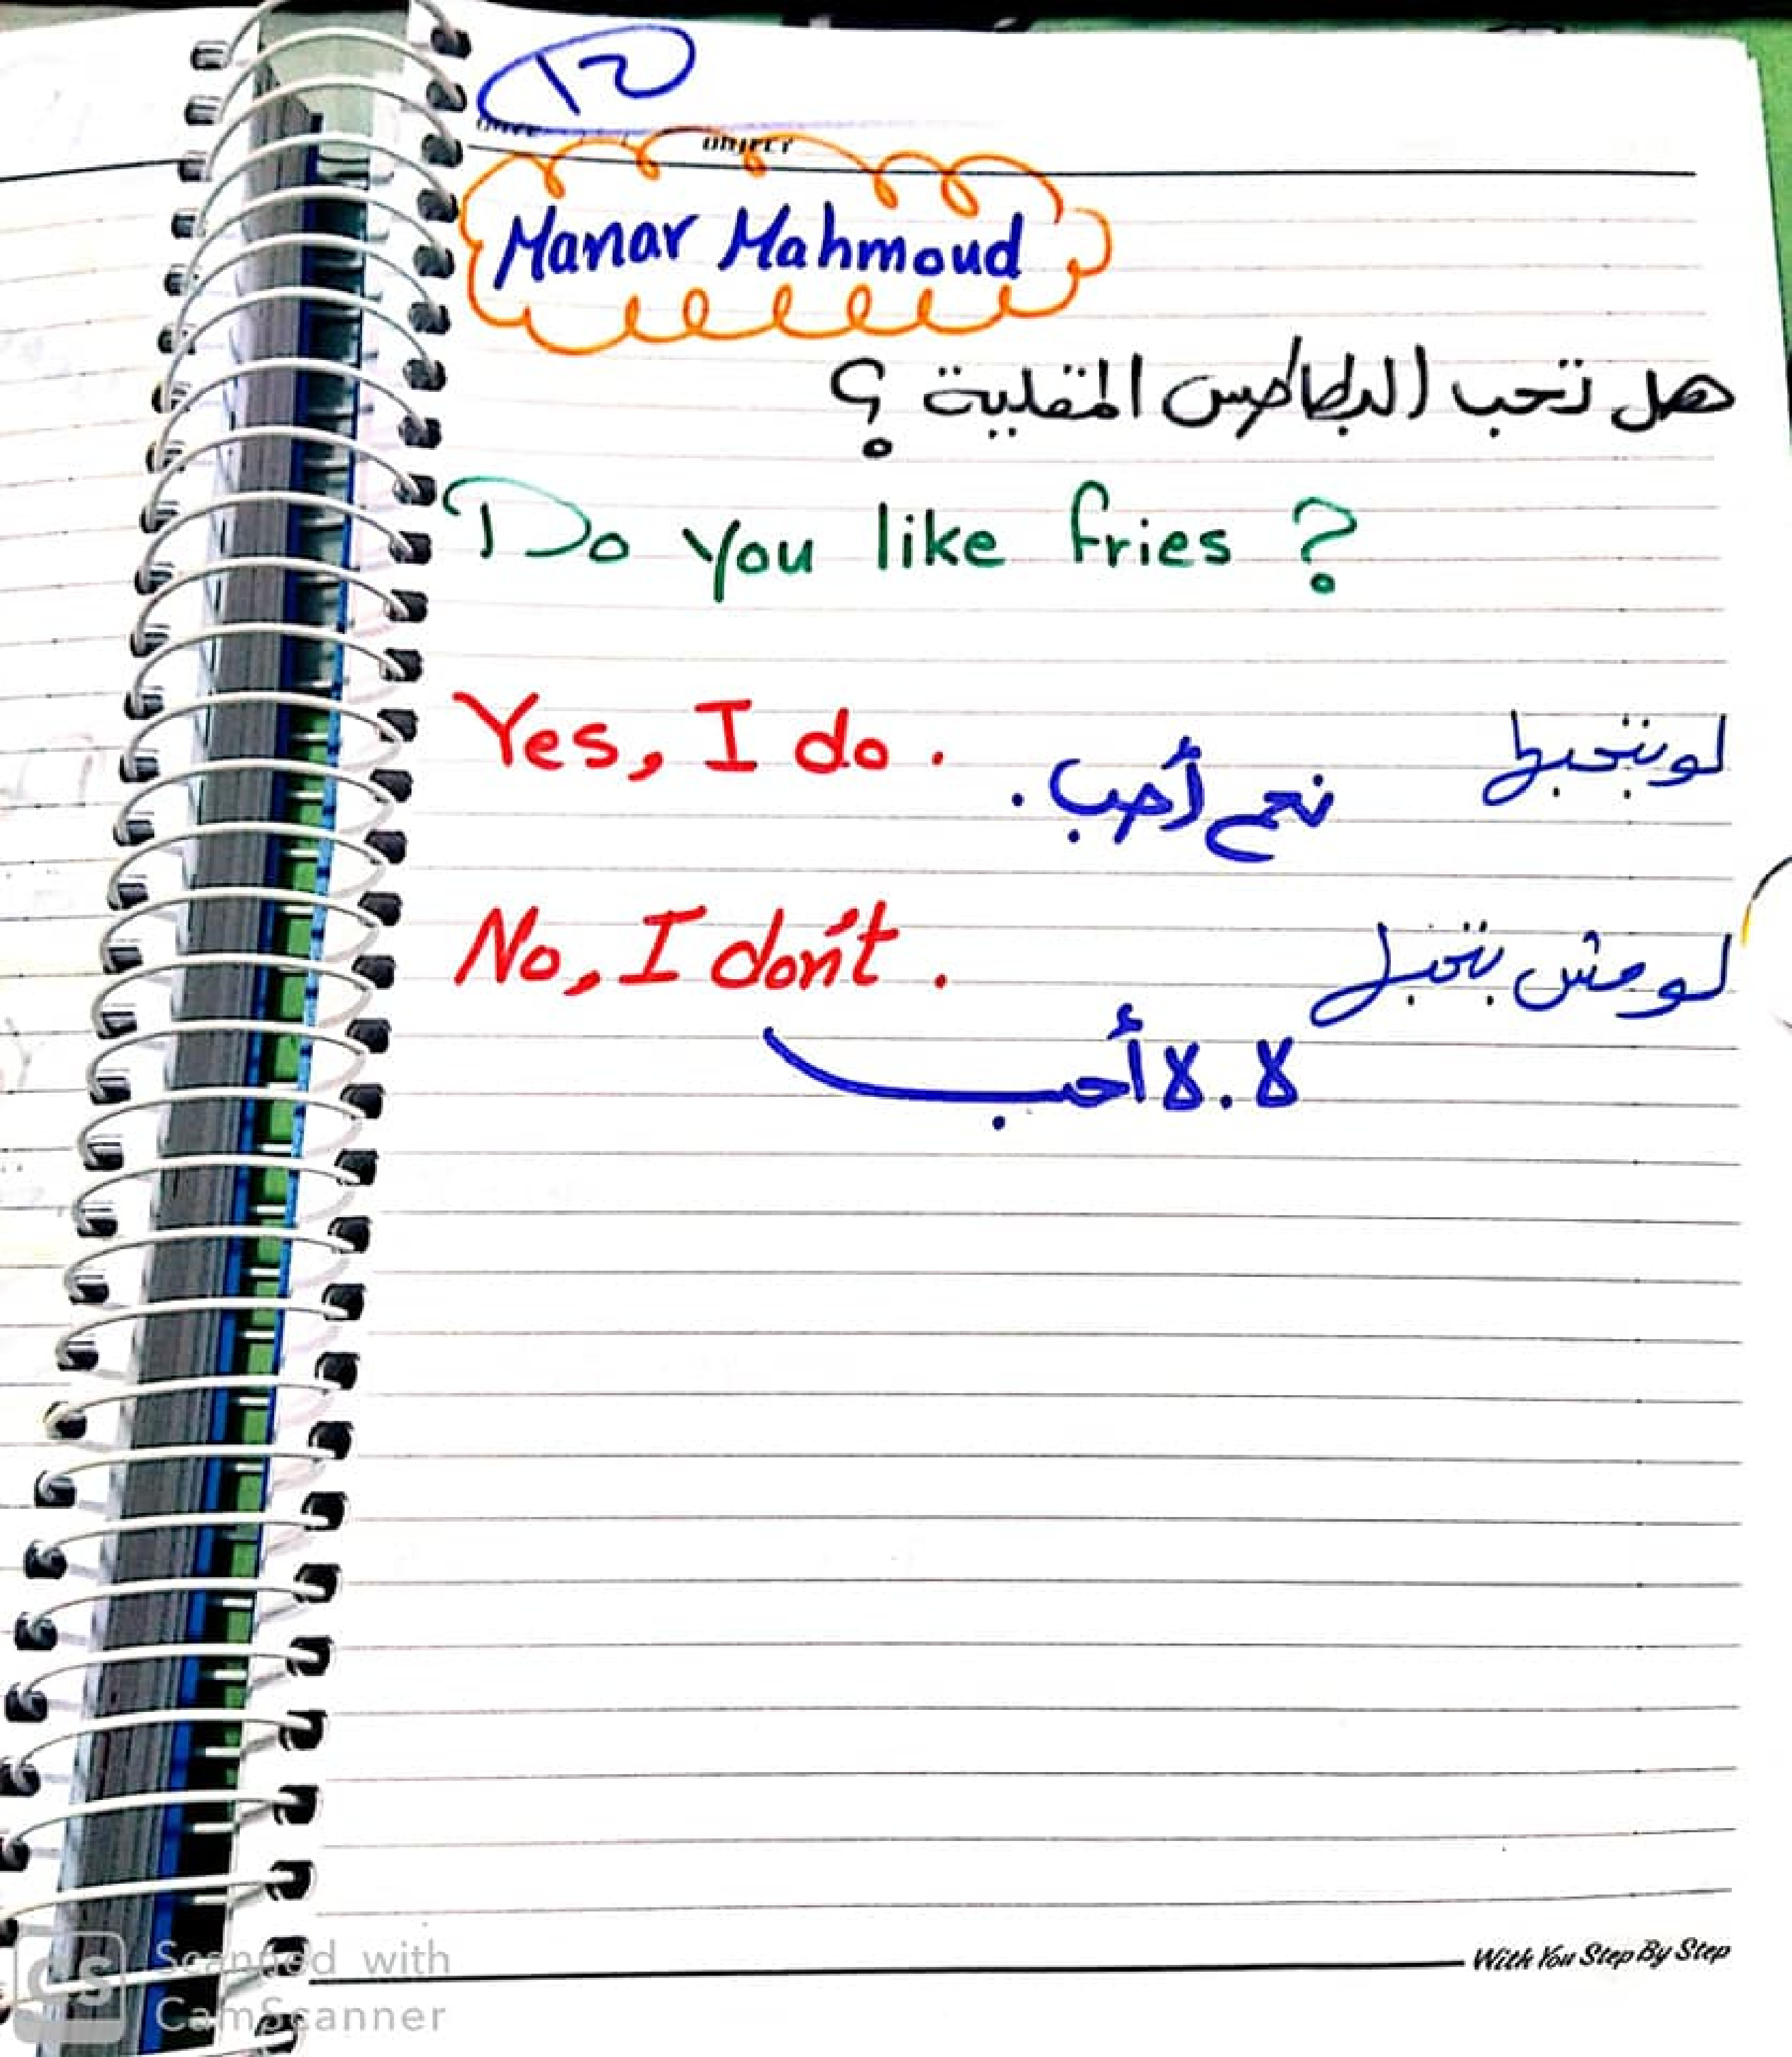 ١٢
Manar Mahmoud
هل تحب البطاطس المقلية ؟
Do you like fries ?
Yes, I do .
لو بتحبها
نعم أحب .
No, I don't .
لو مش بتحبها
لا . لا أحب
With You Step By Step
Scanned with
CamScanner
CS